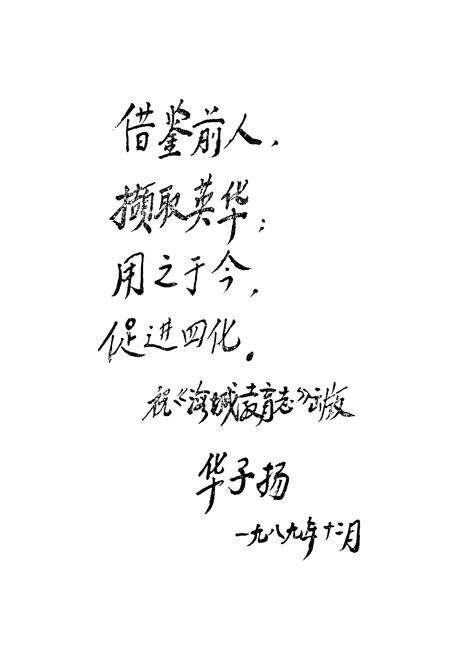 借鉴前人，
撷取英华；
用之于今，
促进四化。
祝《海城教育志》出版
华子扬
一九八九年十二月